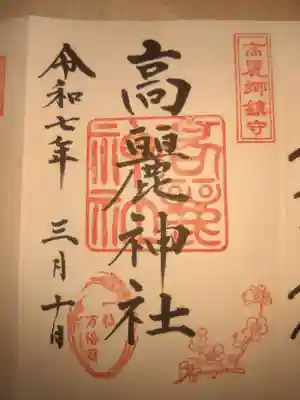 高麗郷鎮守
高麗神社
高麗
神社
令和七年 三月十日